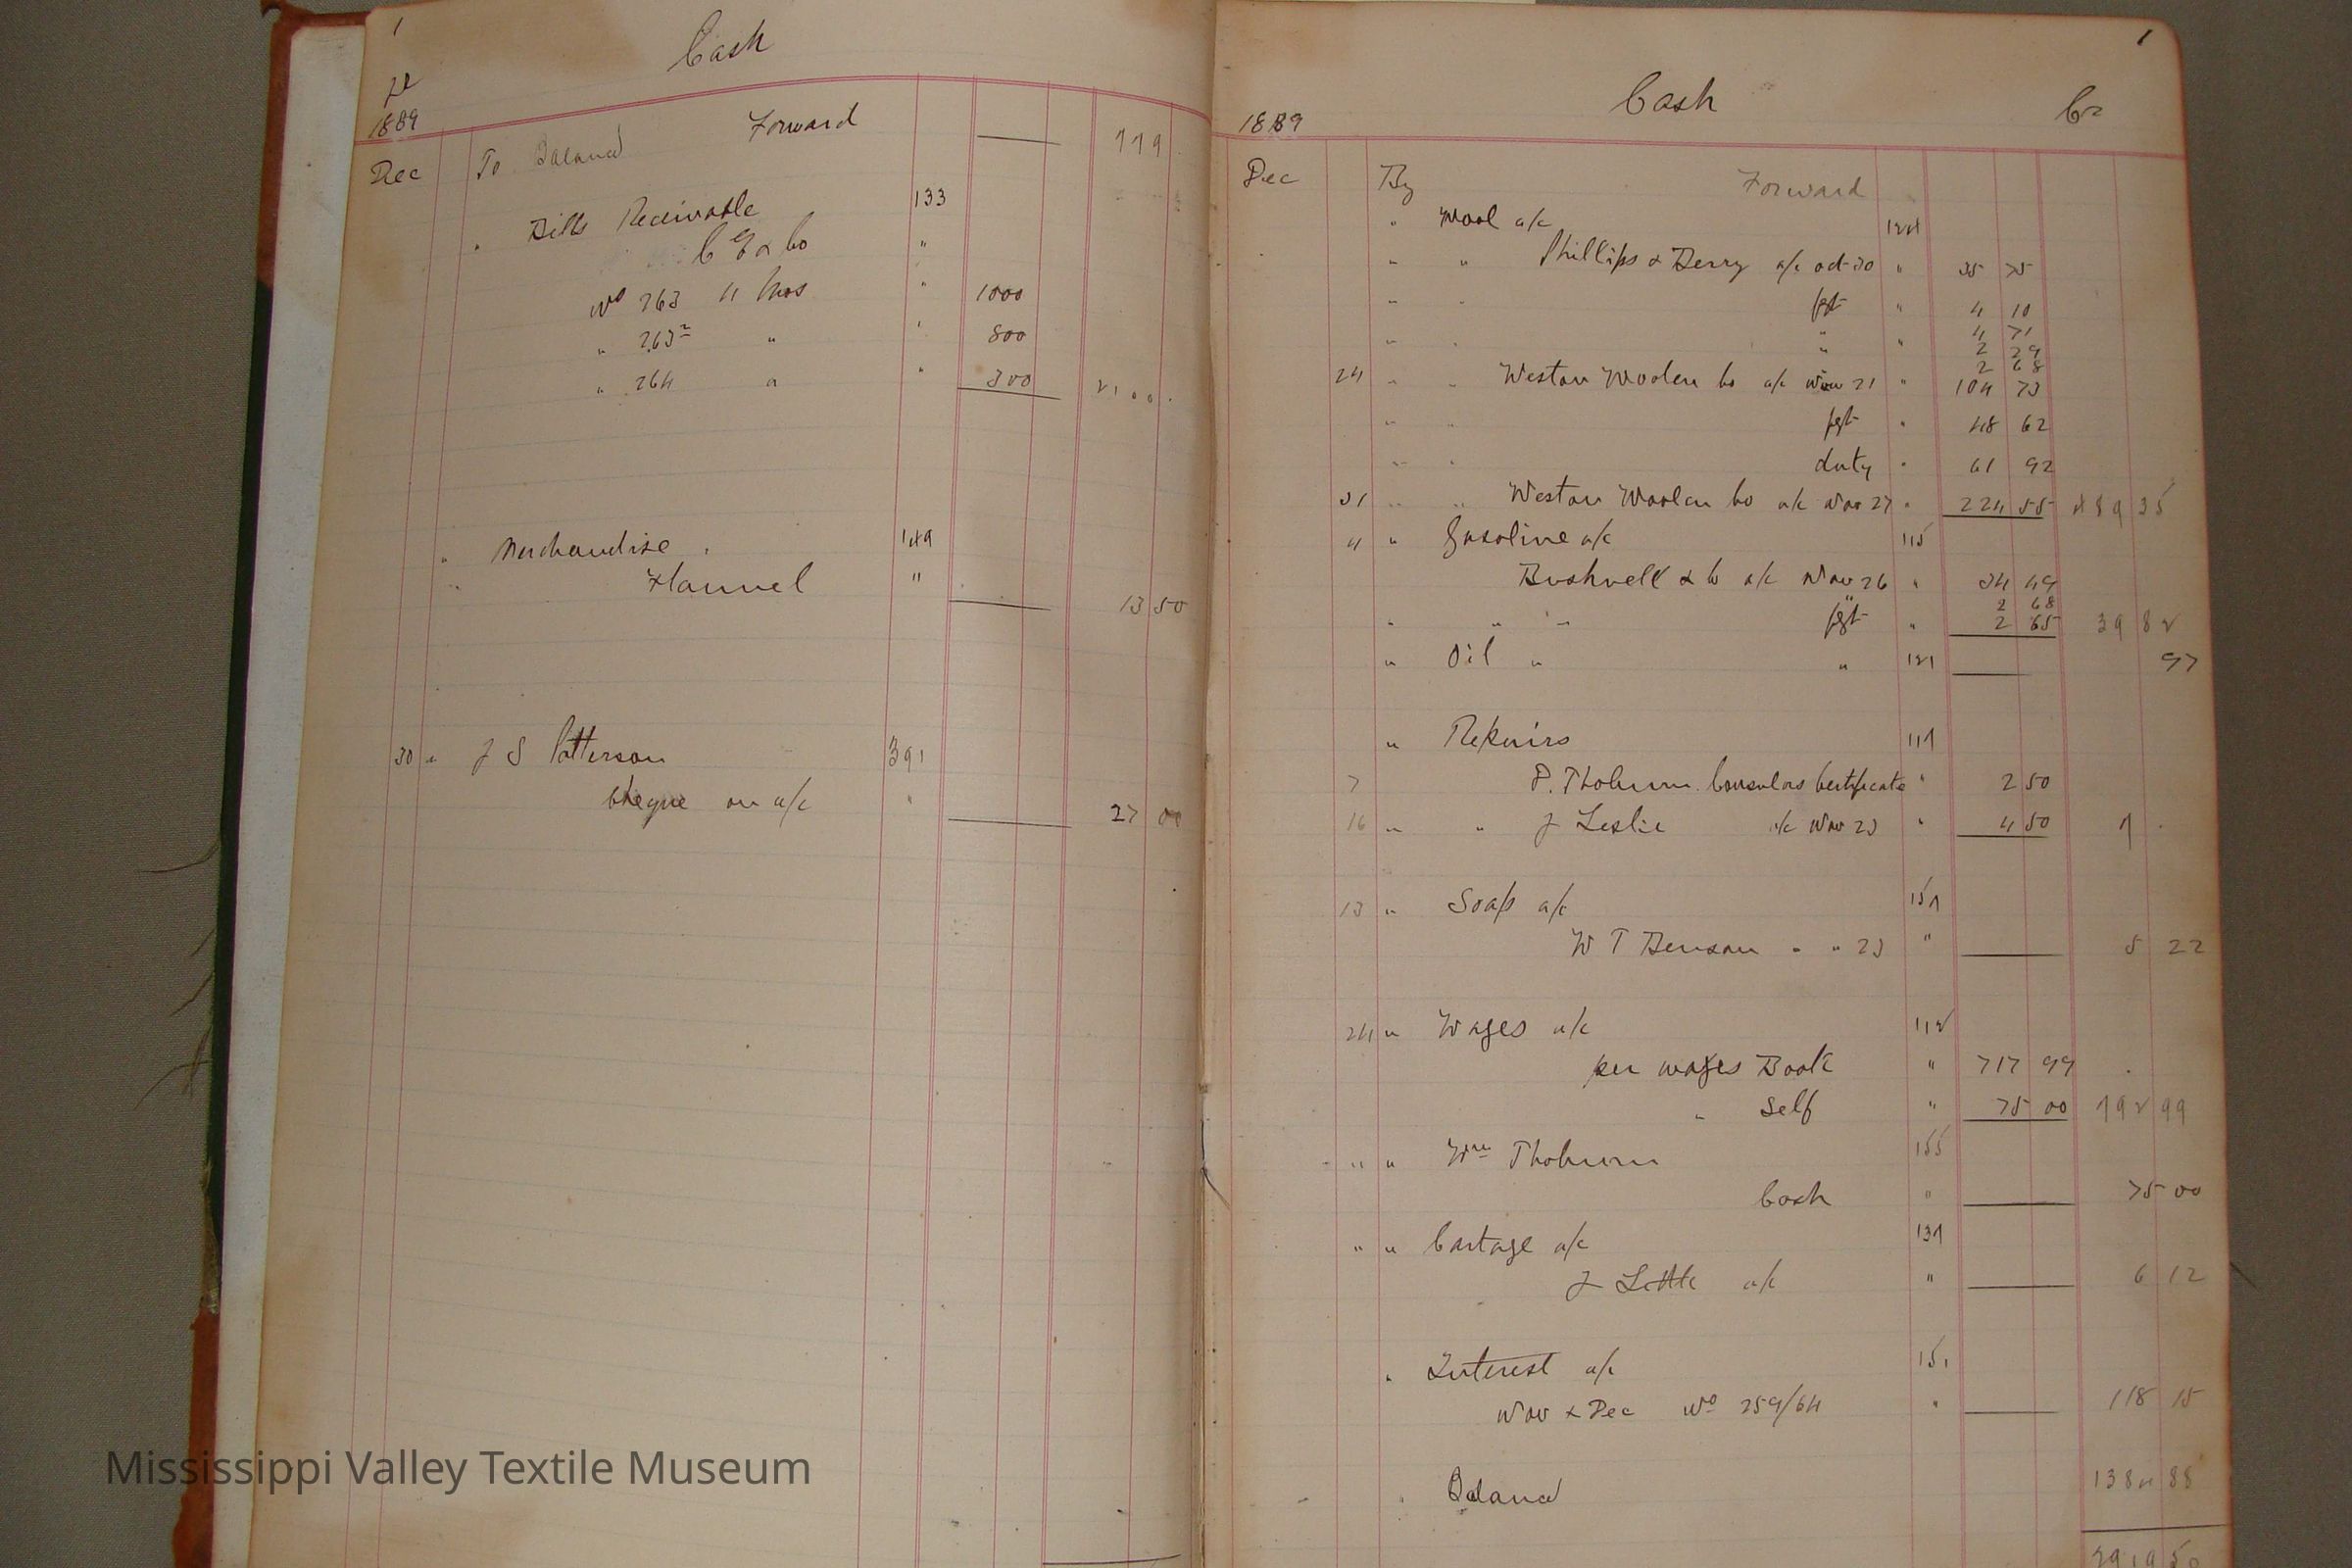 1
Cash
Dr
1889
Dec To Balance Forward 779
" Bills Receivable 133
C G & Co "
No 263 4 Mos " 1000
" 263 2 " " 800
" 264 " " 300 2100.
" Merchandise. 149
" Flannel " 13 50
30 " J S Patterson 391
Cheque on a/c " 27 00
1
Cash
Cr
1889
Dec By Forward
" Wool a/c 124
" " Phillips & Berry a/c Oct 30 " 35 75
" " fgt " 4 10
" " " " 4 71
2 29
2 68
24 " " Weston Woolen Co a/c Nov 21 " 104 73
" " fgt " 48 62
" " duty " 61 92
31 " " Weston Woolen Co a/c Nov 27 " 224 55 489 35
4 " Gasoline a/c 115
Bushnell & Co a/c Nov 26 " 34 49
" 2 68
" " " fgt " 2 65 39 82
" Oil " " 121 97
" Repairs 117
7 P. Thoburn. Consulars Certificate " 2 50
16 " " J Leslie a/c Nov 23 " 4 50 7
13 " Soap a/c 157
W T Benson " " 23 " 5 22
24 " Wages a/c 112
per wages Book " 717 99
" Self " 75 00 792 99
" " Wm Thoburn 155
Cash " 75 00
" " Cartage a/c 137
J Little a/c " 6 12
" Interest a/c 151
Nov & Dec No 259/64 " 118 15
" Balance 1384 88
2919 50
Mississippi Valley Textile Museum